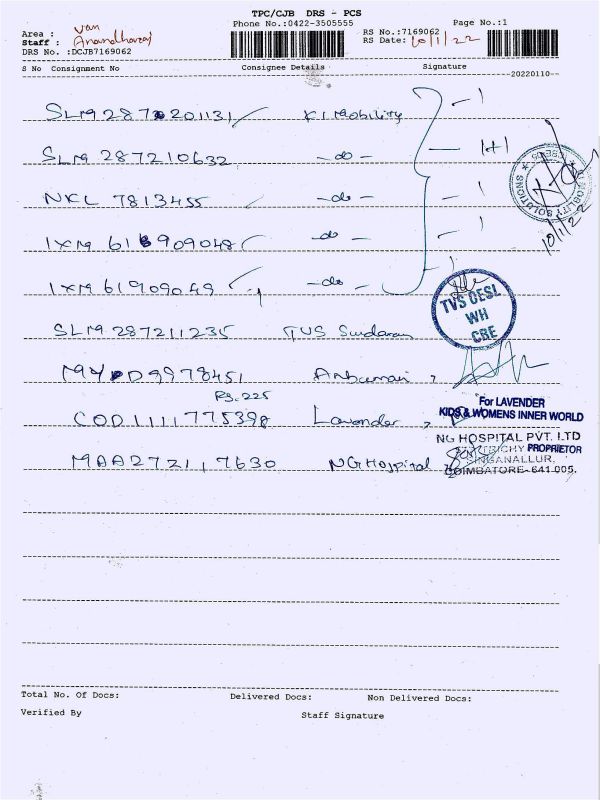 TPC/CJB DRS - PCS
Phone No.:0422-3505555
Page No.:1
Area : Van
Staff : Anandharaj
DRS No. :DCJB7169062
RS No.:7169062
RS Date: 10/1/22
S No Consignment No Consignee Details Signature
--20220110--
SLM287201131 KI Mobility - 1
SLM 287210632 - do - - 1+1
NKL 7813455 - do - - 1
IXM 616909048 - do - - 1
IXM 61909049 - do - - 1
MOBILITY SOLUTIONS
10/1/22
TVS OESL
WH
CBE
SLM 287211235 TVS Sundaram
D9978451
Rs. 225
COD1111775398 Lavender
For LAVENDER
KIDS & WOMENS INNER WORLD
PROPRIETOR
MAA272117630 NG Hospital
NG HOSPITAL PVT. LTD
TRICHY
SINGANALLUR,
COIMBATORE-641 005.
Total No. Of Docs: Delivered Docs: Non Delivered Docs:
Verified By Staff Signature